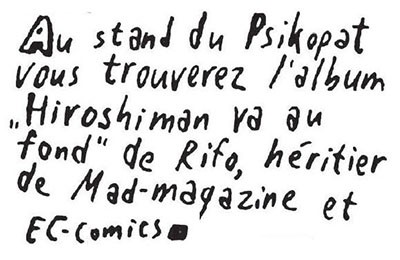 Au stand du Psikopat
vous trouverez l'album
„Hiroshiman va au
fond" de Rifo, héritier
de Mad-magazine et
EC-comics